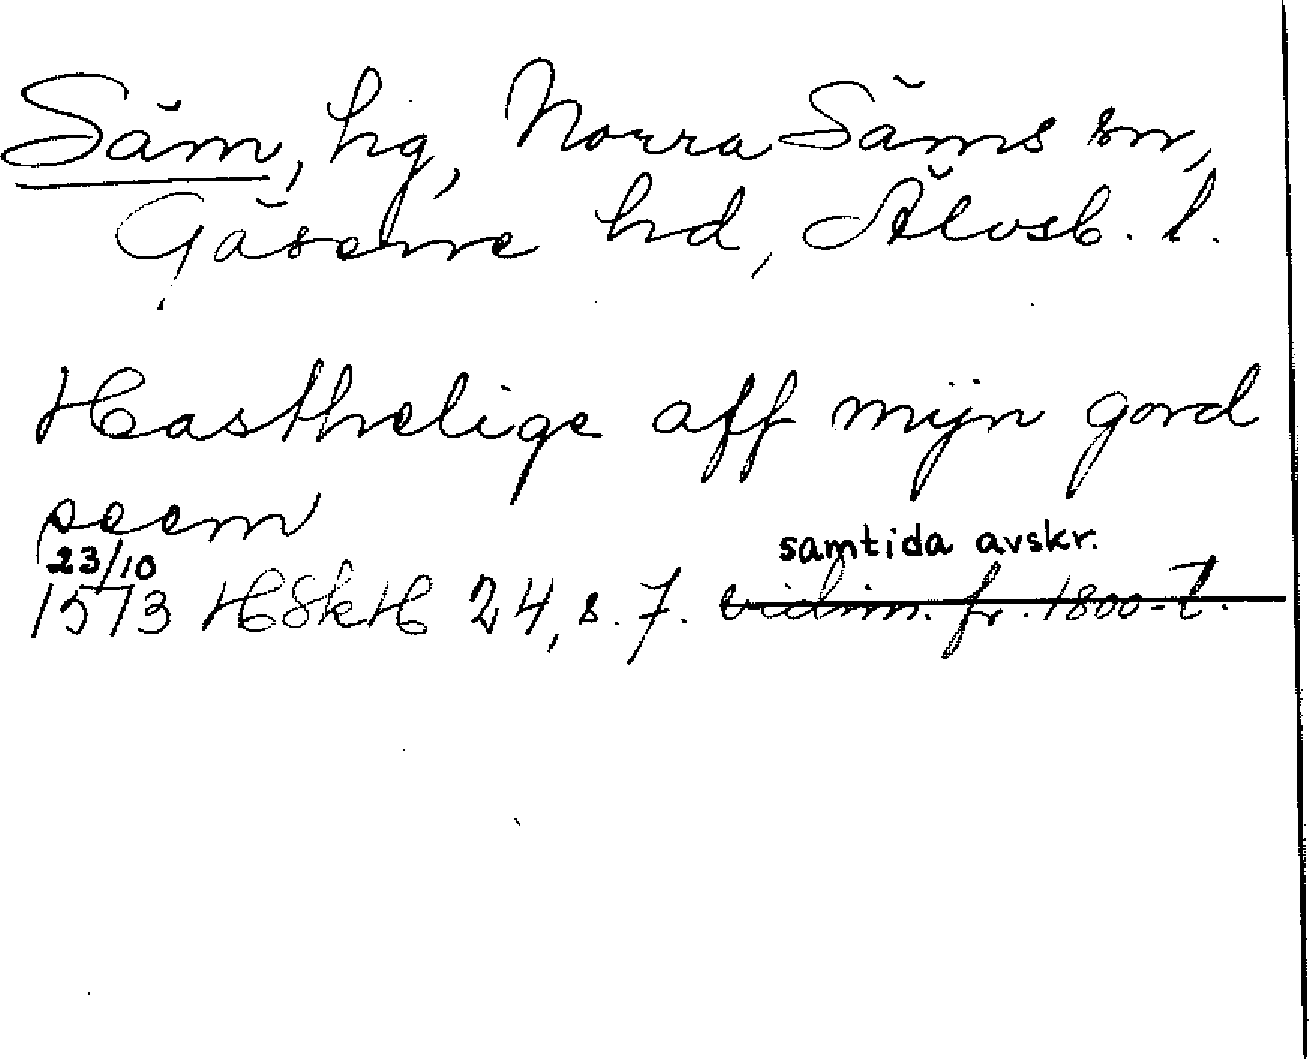 Säm, hg, Norra Säms sn,
Gäsene hd, Älvsb. l.
Hasthelige aff mijn gord
seem
samtida avskr.
23/10
1573 HSkH 24, s. 7. vidim. fr. 1800-t.